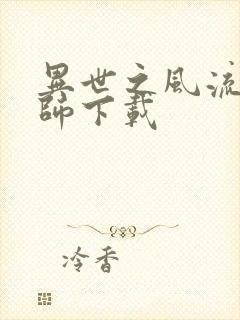 異世之風流
師下載
冷香